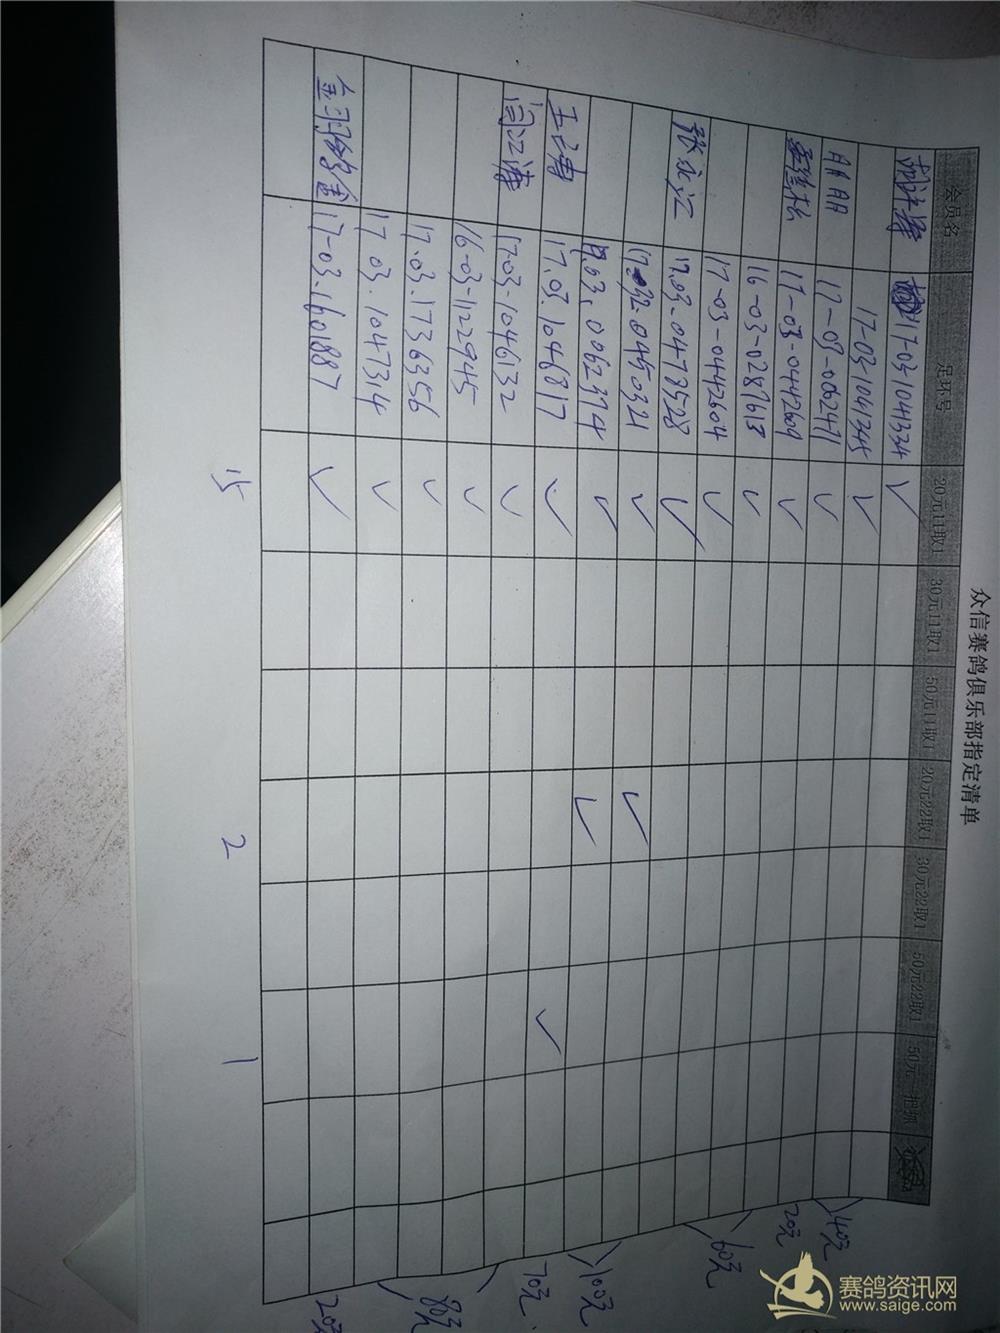 众信赛鸽俱乐部指定清单
会员名 足环号 20元11取1 30元11取1 50元11取1 20元22取1 30元22取1 50元22取1 50元一把抓
17-03-1041334 √
17-03-1041345 √ 40元
AAAA 17-03-0062471 √
17-03-0442609 √ 20元
16-03-0287613 √
17-03-0442604 √ 60元
张永江 17.03-0478528 √
0450321 √ √
17.03.0062374 √ √ 100元
王海 17.03.1046817 √ √ 70元
闫江海 17-03-1046132 √
16-03-1122945 √
17.03.1736356 √ 80元
17.03.1047314 √
金羽鸽舍 17-03-1601887 √ 20元
15 2 1
赛鸽资讯网
www.saige.com